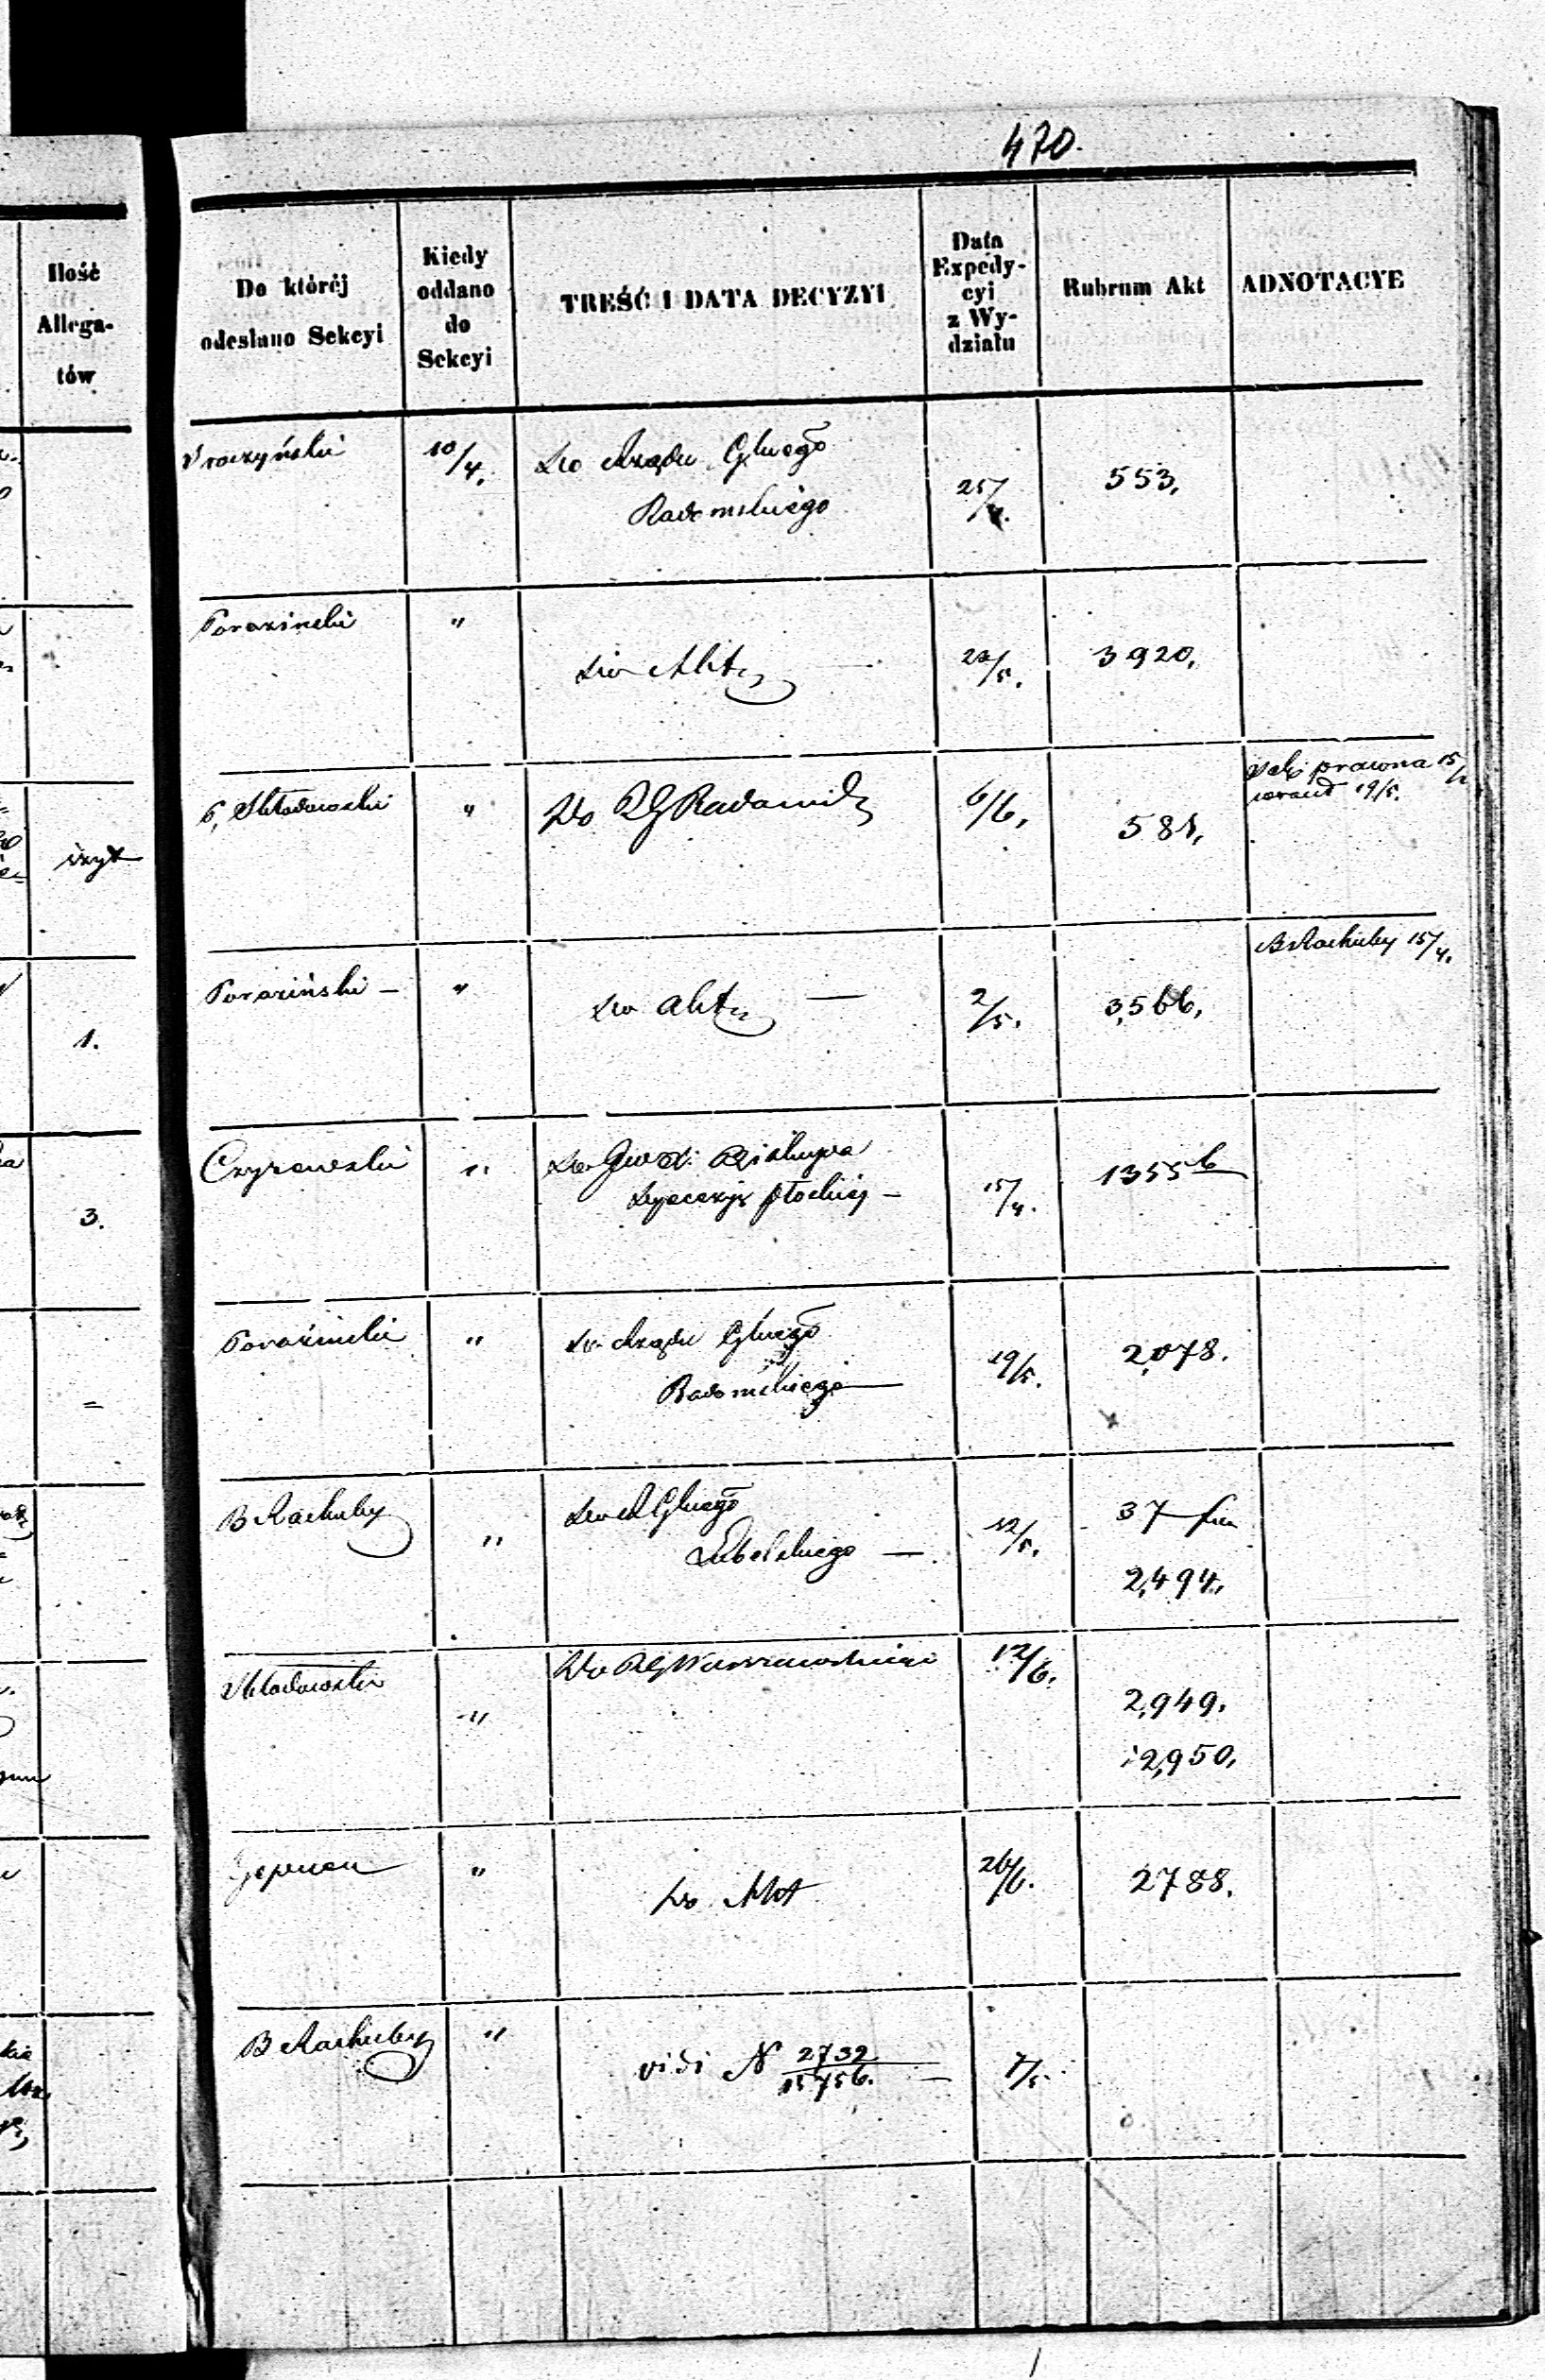 470.
Ilość
Allega-
tów
Do któréj
odesłano Sekcyi
Kiedy
oddano
do
Sekcyi
TREŚĆ I DATA DECYZYI
Data
Expedy-
cyi
z Wy-
działu
Rubrum Akt
ADNOTACYE
10/4.
Do Rządu Glnego
Radomskiego
25/4.
553.
Porazinski
"
Do Akt
3920.
Skłodowski
"
Do RG Radomsk
6/6.
581.
prawna 15/
19/5.
1.
Poraziński —
"
Do akt —
2/5.
3,566.
B Rachuby 15/4.
3.
Czyrewski
"
Do Biskupa
Dyecezyi płockiej —
15/4.
1355 b
=
Porazinski
"
Do Rządu Glnego
Radomskiego
19/5.
2,078.
B Rachuby
"
Do R Glnego
Lubelskiego —
12/5.
37
2,494.
Skłodowski
"
Do RG Warszawskiego
12/6.
2,949.
i 2,950.
"
Do Akt
26/6.
2788.
B Rachuby
"
vidi N 2732/15756. —
7/5.